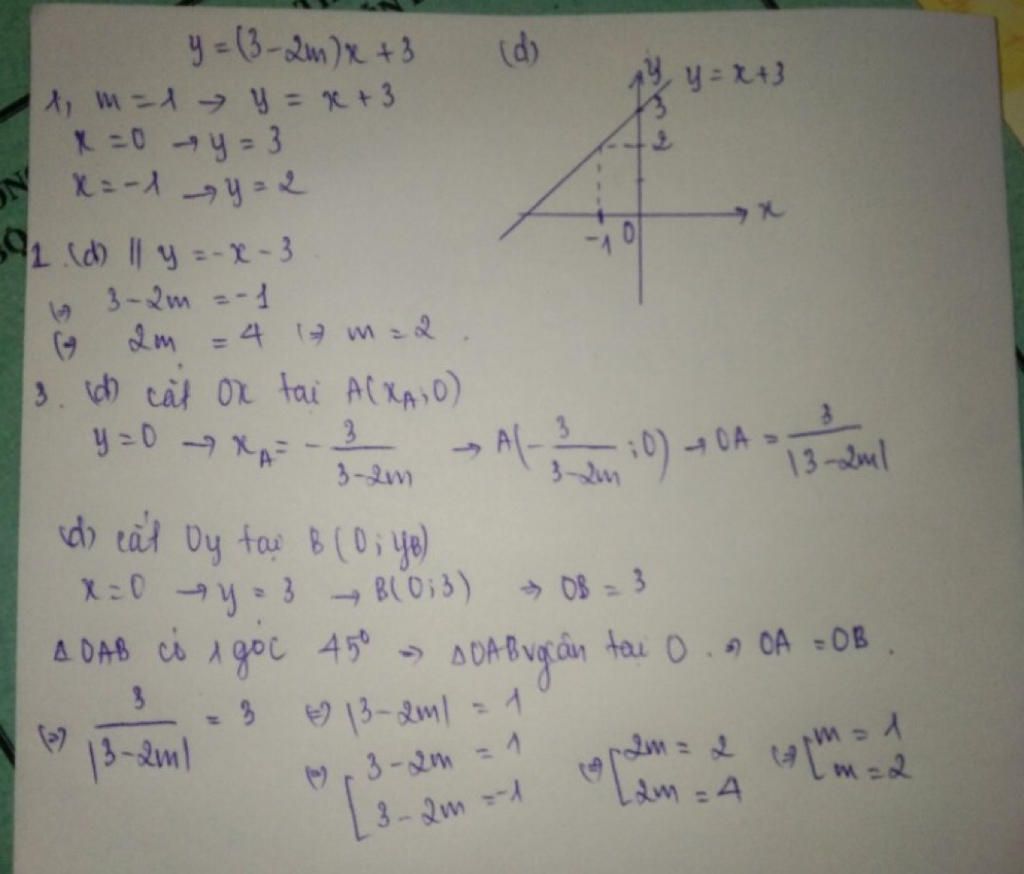 y = (3 - 2m)x + 3 (d)
1, m = 1 → y = x + 3
x = 0 → y = 3
x = -1 → y = 2
y
y = x + 3
3
2
x
-1
0
2. (d) || y = -x - 3
(⇒ 3 - 2m = -1
(⇒ 2m = 4 (⇒ m = 2.
3. (d) cắt Ox tại A(x_A; 0)
y = 0 → x_A = - 3/(3 - 2m) → A(- 3/(3 - 2m); 0) → OA = 3/|3 - 2m|
(d) cắt Oy tại B(0; y_B)
x = 0 → y = 3 → B(0; 3) ⇒ OB = 3
Δ OAB có 1 góc 45° ⇒ Δ OAB vg cân tại O. ⇒ OA = OB.
(⇒) 3/|3 - 2m| = 3 (⇒) |3 - 2m| = 1
(⇒) [ 3 - 2m = 1 (⇒) [ 2m = 2 (⇒) [ m = 1
3 - 2m = -1 2m = 4 m = 2